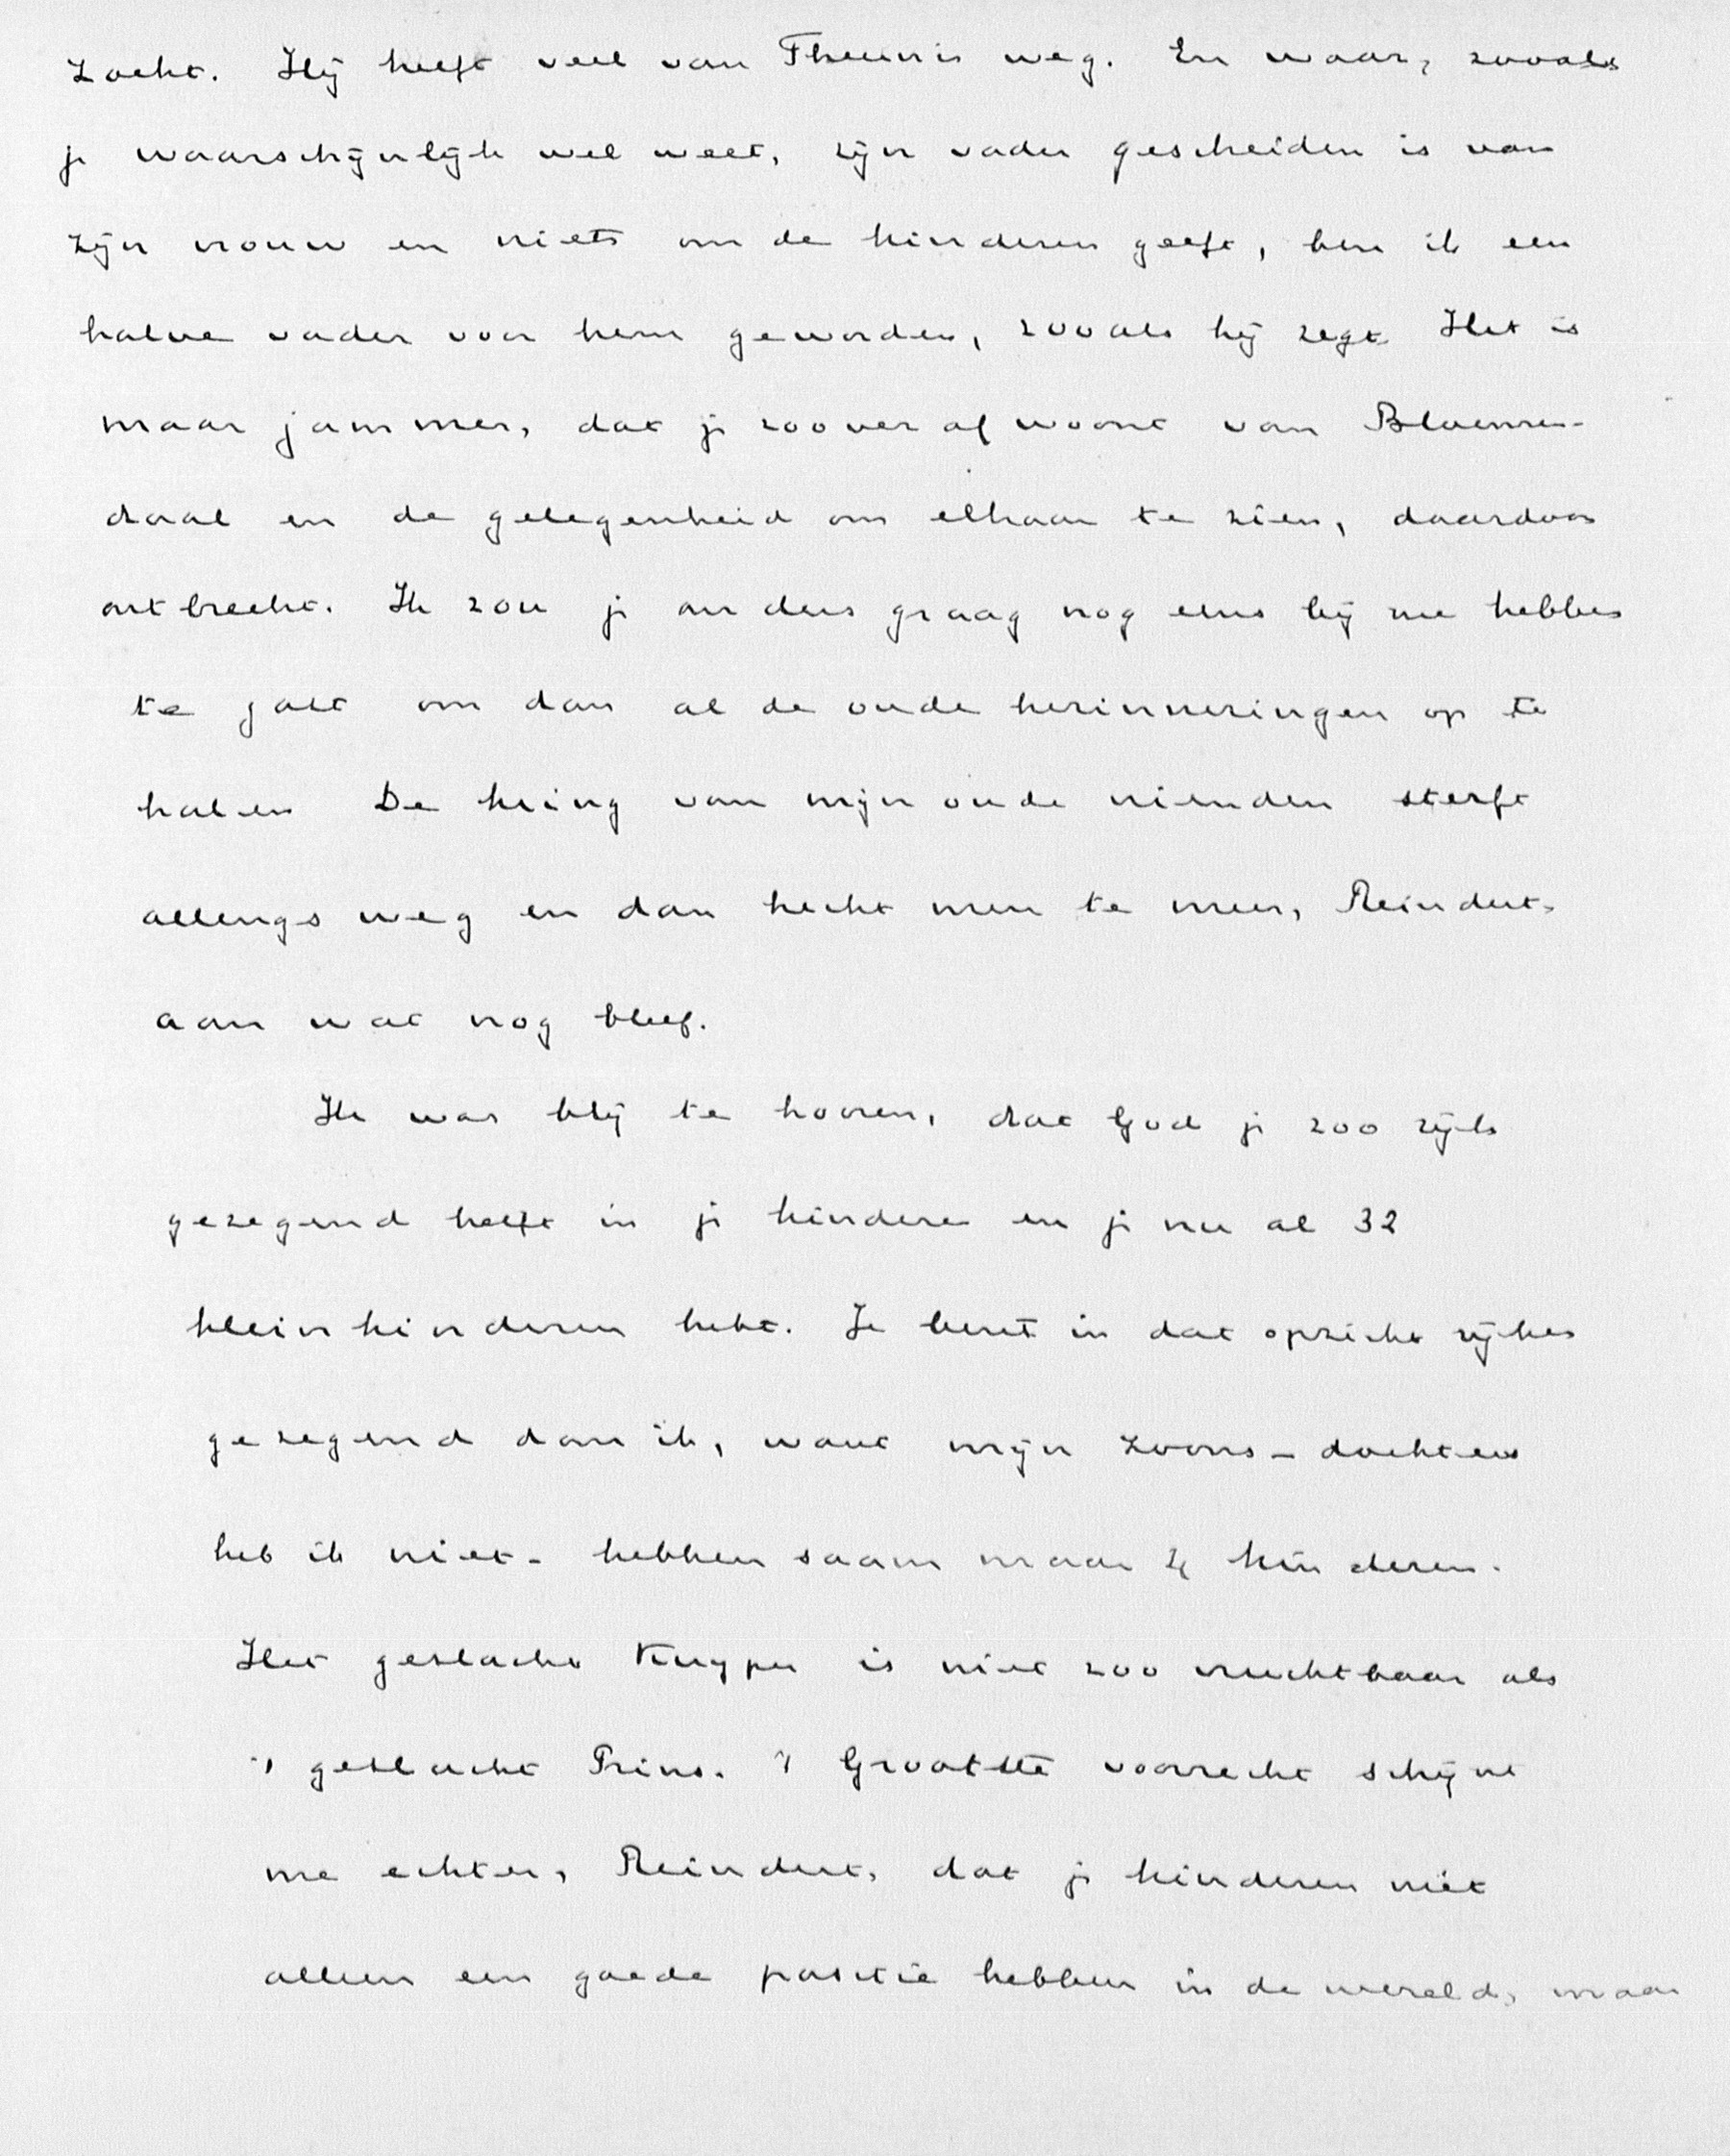 zocht. Hij heeft veel van Theunis weg. En waar, zooals
je waarschijnlijk wel weet, zijn vader gescheiden is van
zijn vrouw en niets om de kinderen geeft, ben ik een
halve vader voor hem geworden, zooals hij zegt Het is
maar jammer, dat je zoover af woont van Bloemen-
daal en de gelegenheid om elkaar te zien, daardoor
ontbreekt. Ik zou je anders graag nog eens bij me hebben
te gast om dan al de oude herinneringen op te
halen De kring van mijn oude vrienden sterft
allengs weg en dan hecht men te meer, Reindert,
aan wat nog bleef.
Ik was blij te hooren, dat God je zoo rijk
gezegend heeft in je kinderen en je nu al 32
kleinkinderen hebt. Je bent in dat opzicht rijker
gezegend dan ik, want mijn zoons - dochters
heb ik niet - hebben saam maar 4 kinderen.
Het geslacht Kuyper is niet zoo vruchtbaar als
't geslacht Prins. 't Grootste voorrecht schijnt
me echter, Reindert, dat je kinderen niet
alleen een goede positie hebben in de wereld, maar